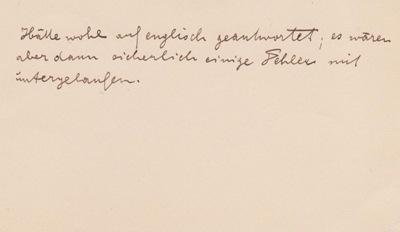 Hätte wohl auf englisch geantwortet; es wären
aber dann sicherlich einige Fehler mit
untergelaufen.